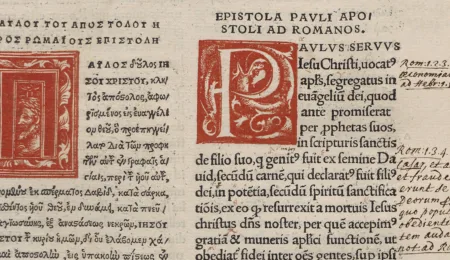 ΑΥΛΟΥ ΤΟΥ ΑΠΟΣΤΟΛΟΥ Η
ΡΟΣ ΡΩΜΑΙΟΥΣ ΕΠΙΣΤΟΛΗ
ΠΑΥΛΟΣ δȣλος ΙΗ
ΣΟΥ ΧΡΙΣΤΟΥ, κλη
τὸς ἀπόστολος, ἀφω
ρισμένος εἰς ἐυαγγέλι
ομ θεοῦ, ὃ προεπηγγεί
λατο Διὰ τῶμ προφη
τῶμ αὐτȣ ἐν γραφαῖς ἁγί
αις, περὶ τȣ ὑȣ αὐτȣ,
ἐκ σπέρματος Δαβὶδ, κατὰ σάρκα,
ὑοῦ θεοῦ ἐν δυνάμει, κατὰ πνεῦ
ἐξ ἀναστάσεως νεκρῶμ, ΙΗΣΟΥ
τȣ κυρίȣ ἡμῶμ, δι ȣ ἐλάβομεμ χά
καὶ ἀποστολὴν, εἰς ὑπακοὴμ πίστεως ἐν
EPISTOLA PAVLI APO/
STOLI AD ROMANOS.
PAVLVS SERVVS
Iesu Christi, uocatꝰ
apł̃s, segregatus in
euãgeliũ dei, quod
ante promiserat
per ꝓphetas suos,
in scripturis sanctis
de filio suo, q genitꝰ fuit ex semine Da
uid, secũdũ carnẽ, qui declaratꝰ fuit filiꝰ
dei, in potẽtia, secũdũ spiritũ sanctifica
tiõis, ex eo ꝙ resurrexit a mortuis Iesus
christus dñs noster, per quẽ accepimꝰ
gratiã & muneris apłici functionẽ, ut
obediat̃ fidei inter oẽs gentes, sup ipsi
Rom:1.2.3.
œconomia
ad Hebr:1.
Rom:1.3.4
et a
et fraude
erunt se
Deorum f
quo popul
obedient
tem auda
not. ad Ro